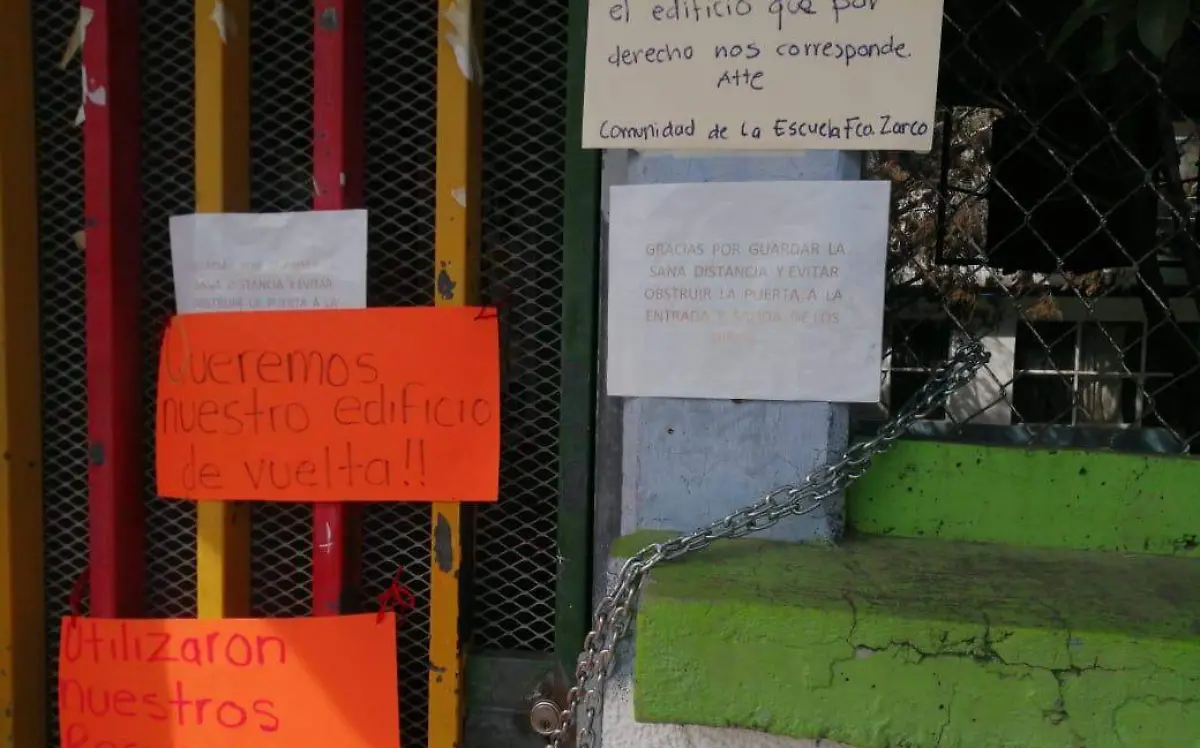 el edificio que por
derecho nos corresponde.
Atte
Comunidad de la Escuela Fco. Zarco
GRACIAS POR GUARDAR LA
SANA DISTANCIA Y EVITAR
OBSTRUIR LA PUERTA A LA
ENTRADA Y SALIDA DE LOS
SANA DISTANCIA Y EVITAR
OBSTRUIR LA PUERTA A LA
Queremos
nuestro edificio
de vuelta!!
Utilizaron
nuestros